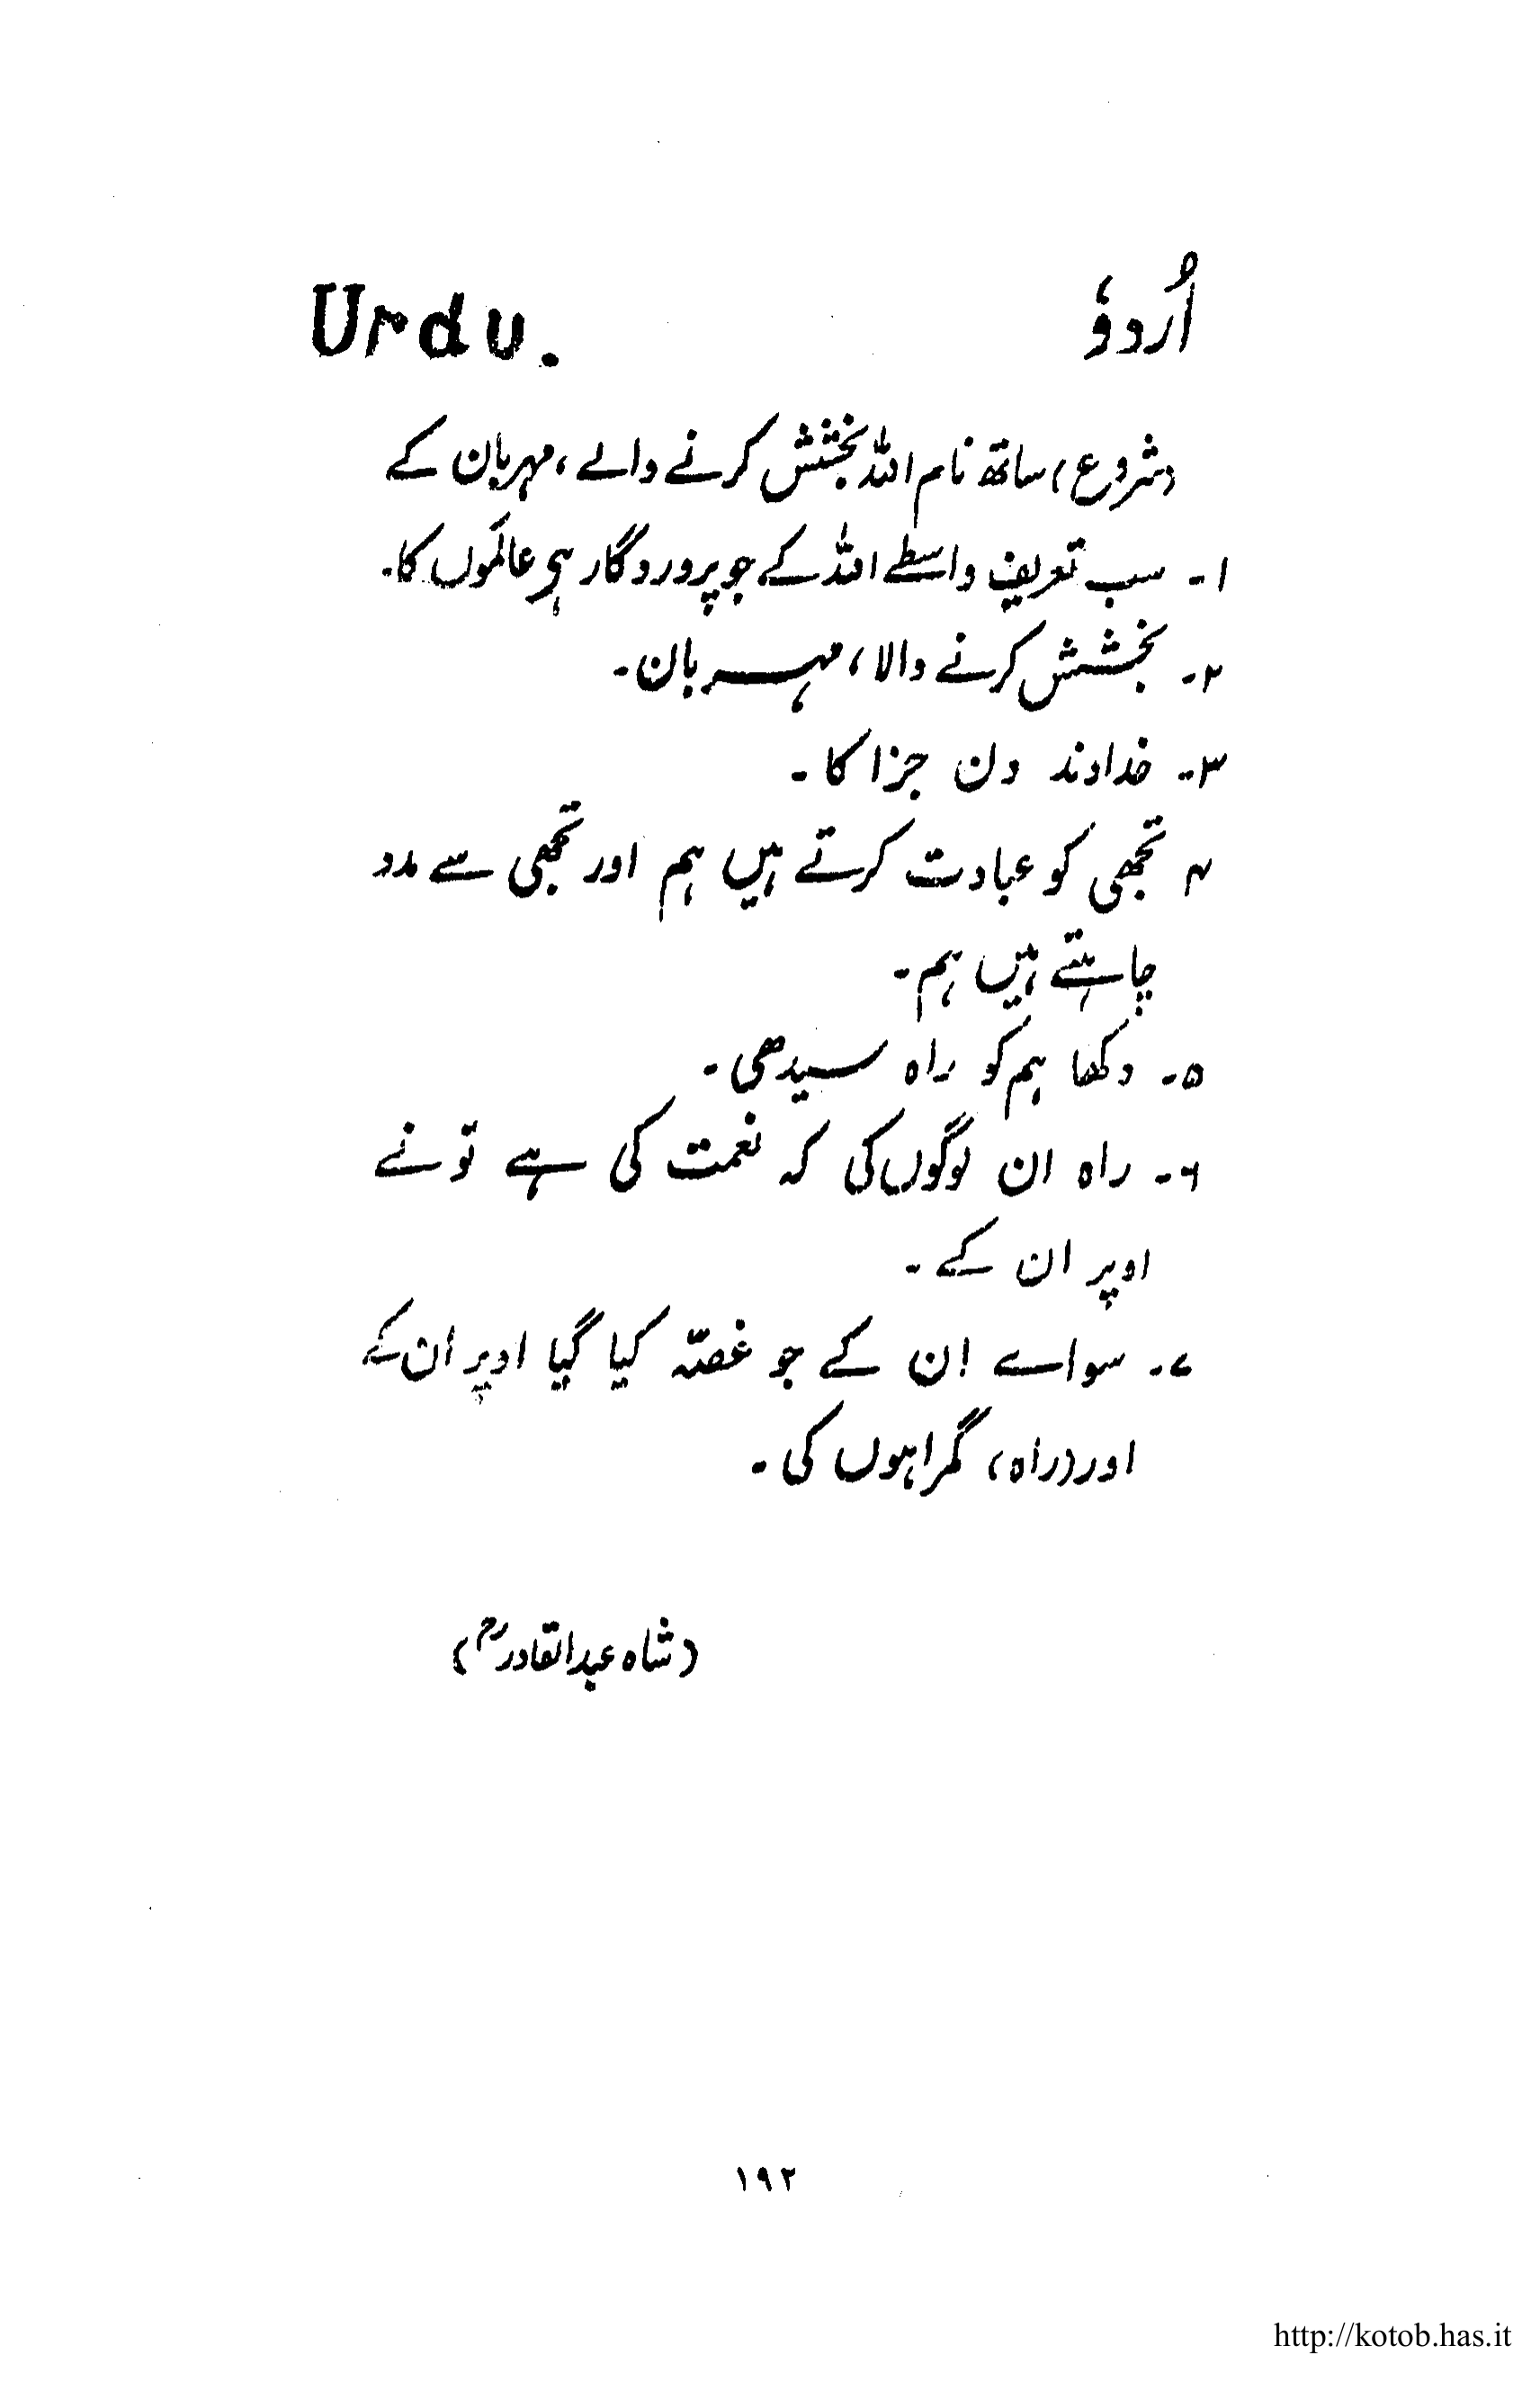 Urdu. اُردوٗ
(شروع) ساتھ نام اللہ بخشش کرنے والے، مہربان کے
۱- سب تعریف واسطے اللہ کے جو پروردگار ہی عالموں کا۔
۲- بخشش کرنے والا، مہربان۔
۳- خداوند دن جزا کا۔
۴ تجھی کو عبادت کرتے ہیں ہم اور تجھی سے مدد
چاہتے ہیں ہم۔
۵- دکھا ہم کو راہ سیدھی۔
۶- راہ ان لوگوں کی کہ نعمت کی ہے تو نے
اوپر ان کے۔
۷- سواے اِن کے جو غصّہ کیا گیا اوپر ان کے
اور (راہ) گمراہوں کی۔
(شاہ عبدالقادرؒ)
۱۹۲
http://kotob.has.it